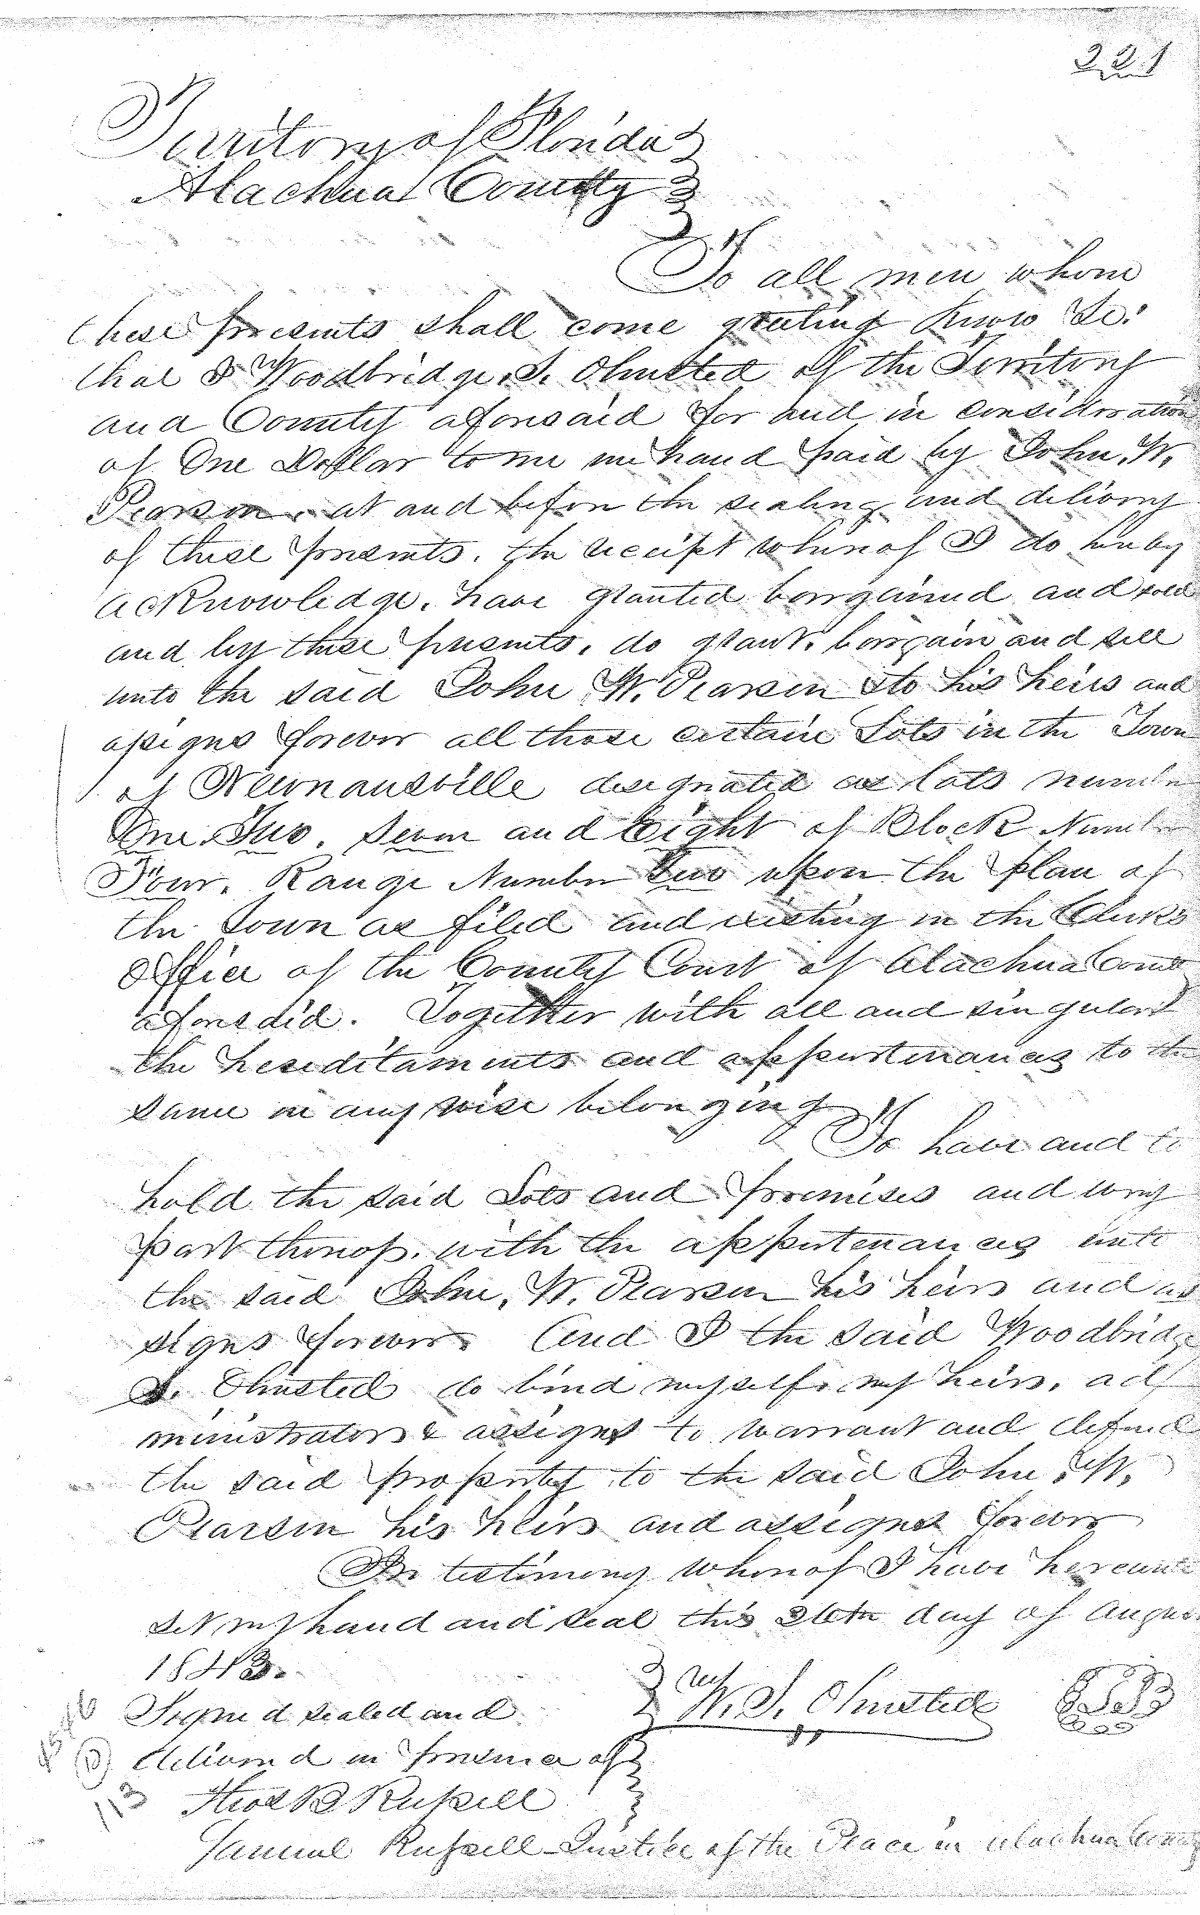 221
Territory of Florida
Alachua County
To all men whom
these presents shall come greeting Know Ye:
that I Woodbridge S. Olmsted of the Territory
and County aforesaid for and in consideration
of One Dollar to me in hand paid by John, W.
Pearson, at and before the sealing and delivery
of these presents, the receipt whereof I do hereby
acknowledge, have granted bargained and sold
and by these presents, do grant, bargain and sell
unto the said John W. Pearson to his heirs and
assigns forever all those certain Lots in the Town
of Newnansville designated as lots number
One, Two, Seven and Eight of Block Number
Four, Range Number Two upon the plan of
the Town as filed and existing in the Clerks
Office of the County Court of Alachua County
aforesaid. Together with all and singular
the hereditaments and appurtenances to the
same in any wise belonging
To have and to
hold the said Lots and premises and every
part thereof, with the appurtenances unto
the said John, W. Pearson his heirs and as
signs forever. And I the said Woodbridge
S. Olmsted do bind myself, my heirs, ad
ministrators & assigns to warrant and defend
the said property to the said John, W,
Pearson his heirs and assigns forever
In testimony whereof I have hereunto
set my hand and seal this 26th day of August
1843.
Signed sealed and W. S. Olmsted
delivered in presence of
Thos B Russell
Samuel Russell Justice of the Peace in Alachua County
D
113